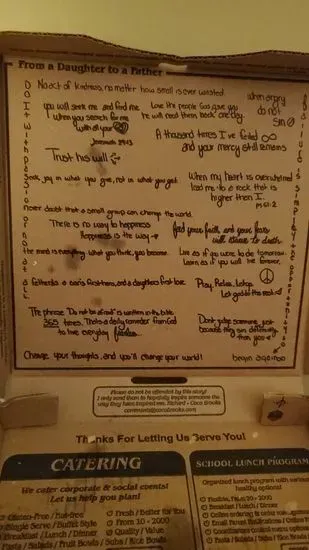 From a Daughter to a Father
No act of kindness, no matter how small is ever wasted.
you will seek me and find me
when you search for me
with all your
Jeremiah 29:13
Love the people God gave you
he will need them back one day.
when angry
do not
sin
A thousand times I've failed
and your mercy still remains
Trust his will
Seek joy in what you give, not in what you get.
When my heart is overwhelmed
lead me to a rock that is
higher then I.
Ps 61:2
never doubt that a small group can change the world.
There is no way to happiness
Happiness is the way
feed your faith, and your fears
will starve to death.
The mind is everything what you think, you become.
Live as if you were to die tomorrow.
Learn as if you will live forever.
Fatherhs a son's first hero, and a daughters first love.
Pray, Relax, Let go
Let god do the rest
The phrase "Do not be afraid" is written in the bible
365 times. Thats a daily reminder from God
to live everyday fearless.
Dont judge someone just
because they sin differently
than you
Change your thoughts, and you'll change your world!
Do It with passion or not at all
Failure is simply the opportunity to
begin again
Please do not be offended by this story!
I only send them to hopefully inspire someone the
way they have inspired me. Richard - Coco Brooks
comments@cocobrooks.com
Thanks For Letting Us Serve You!
CATERING
We cater corporate & social events!
Let us help you plan!
Gluten-Free / Nut-free
Single Serve / Buffet Style
Breakfast / Lunch / Dinner
Pasta / Salads / Fruit Bowls / Subs / Rice Bowls
Fresh / Better for You
From 10 - 2000
Quality / Value
SCHOOL LUNCH PROGRAM
Organized lunch program with various
healthy options!
Flexible, From 20 - 2000
Breakfast / Lunch / Dinner
Online ordering
Pasta / Salads / Subs / Rice Bowls